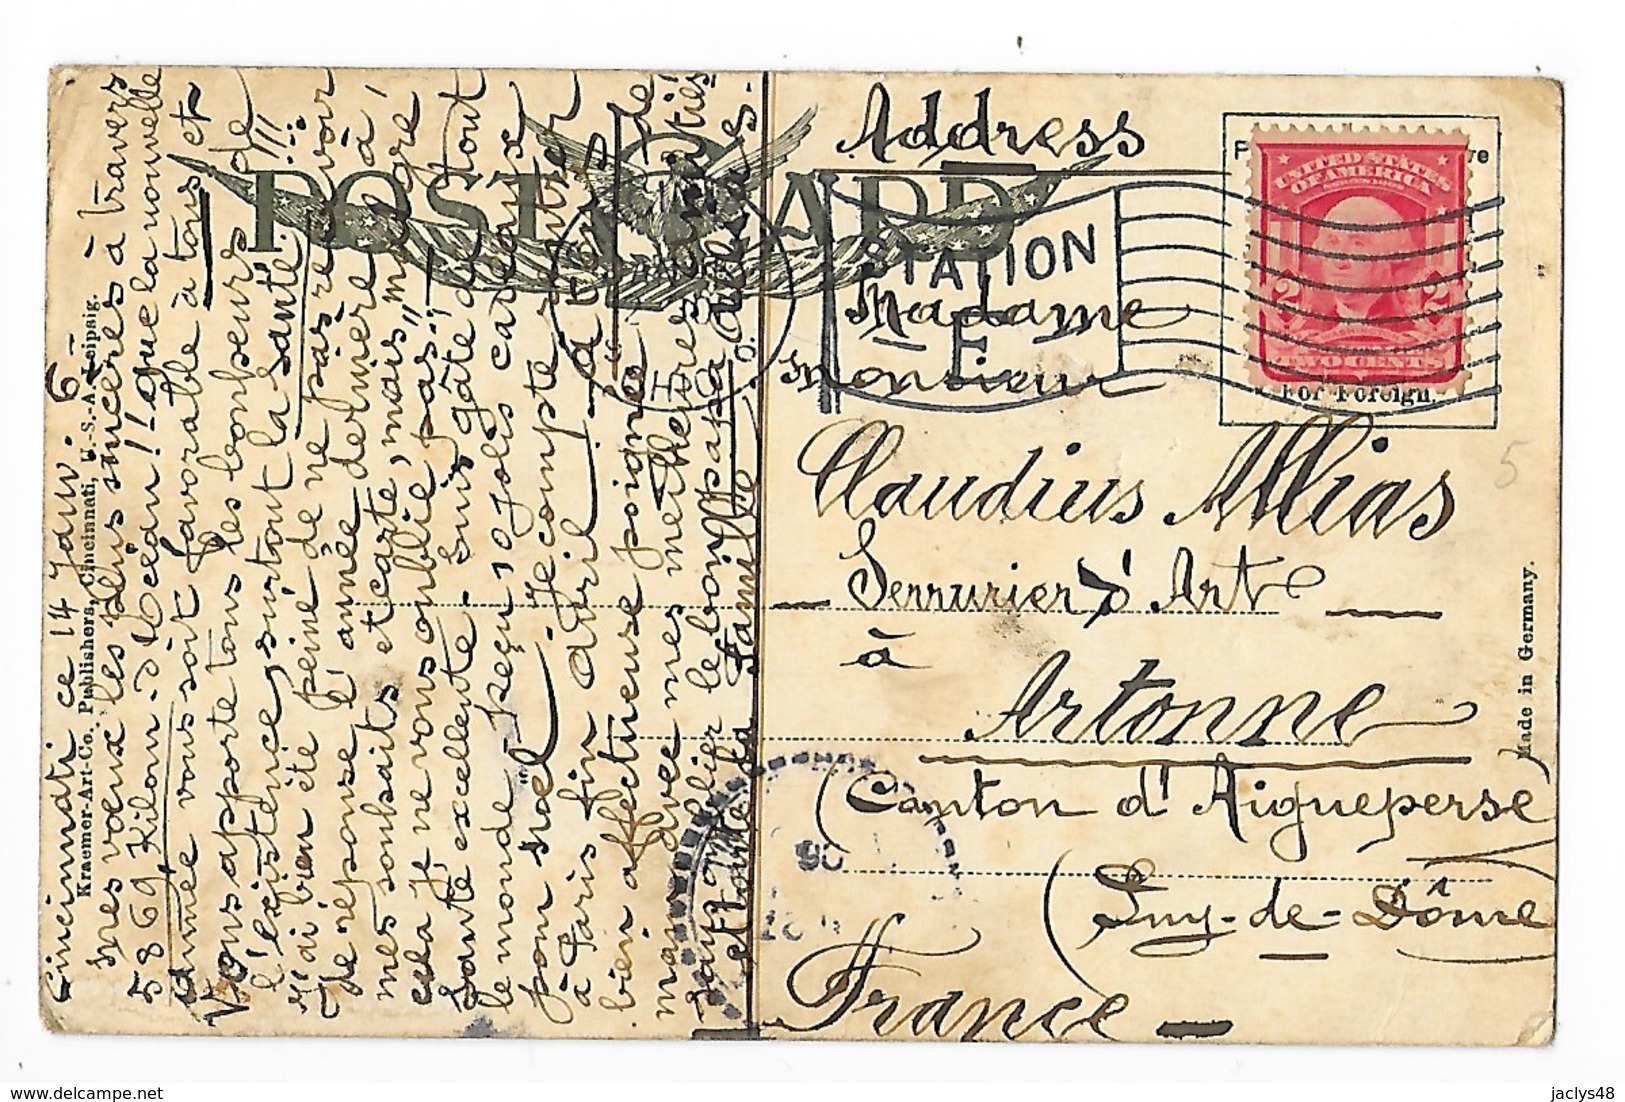 Cincinnati ce 14 Janv. 6 –
mes voeux les plus sincères à travers
5869 Kilom. d'Océan!! que la nouvelle
année vous soit favorable à tous et
Vous apporte tous les bonheurs de
l'existence, surtout la santé!!!
J'ai bien été peiné de ne pas revoir
de réponse l'année dernière à
mes souhaits et carte, mais, malgré
cela je ne vous oublie pas!,
Santé excellente – suis gâté de tout
le monde – reçu 10 jolis cadeaux
pour Noël – Je compte rentrer
à Paris fin Avril – à tous
bien affectueuse poignée de
mains avec mes meilleures amitiés
sans oublier le bon papa Allias
et toute la famille.
Kraemer-Art-Co. Publishers, Cincinnati, U.-S.-A.-Leipsig.
POST CARD
Address
STATION
E.
UNITED STATES
OF AMERICA
SERIES 1902
2 2
TWO CENTS
For Foreign.
5
Madame
Monsieur
Claudius Allias
Serrurier d'Art
à
Artonne
(Canton d'Aigueperse)
(Puy-de-Dôme)
France –
06
Made in Germany.
jaclys48